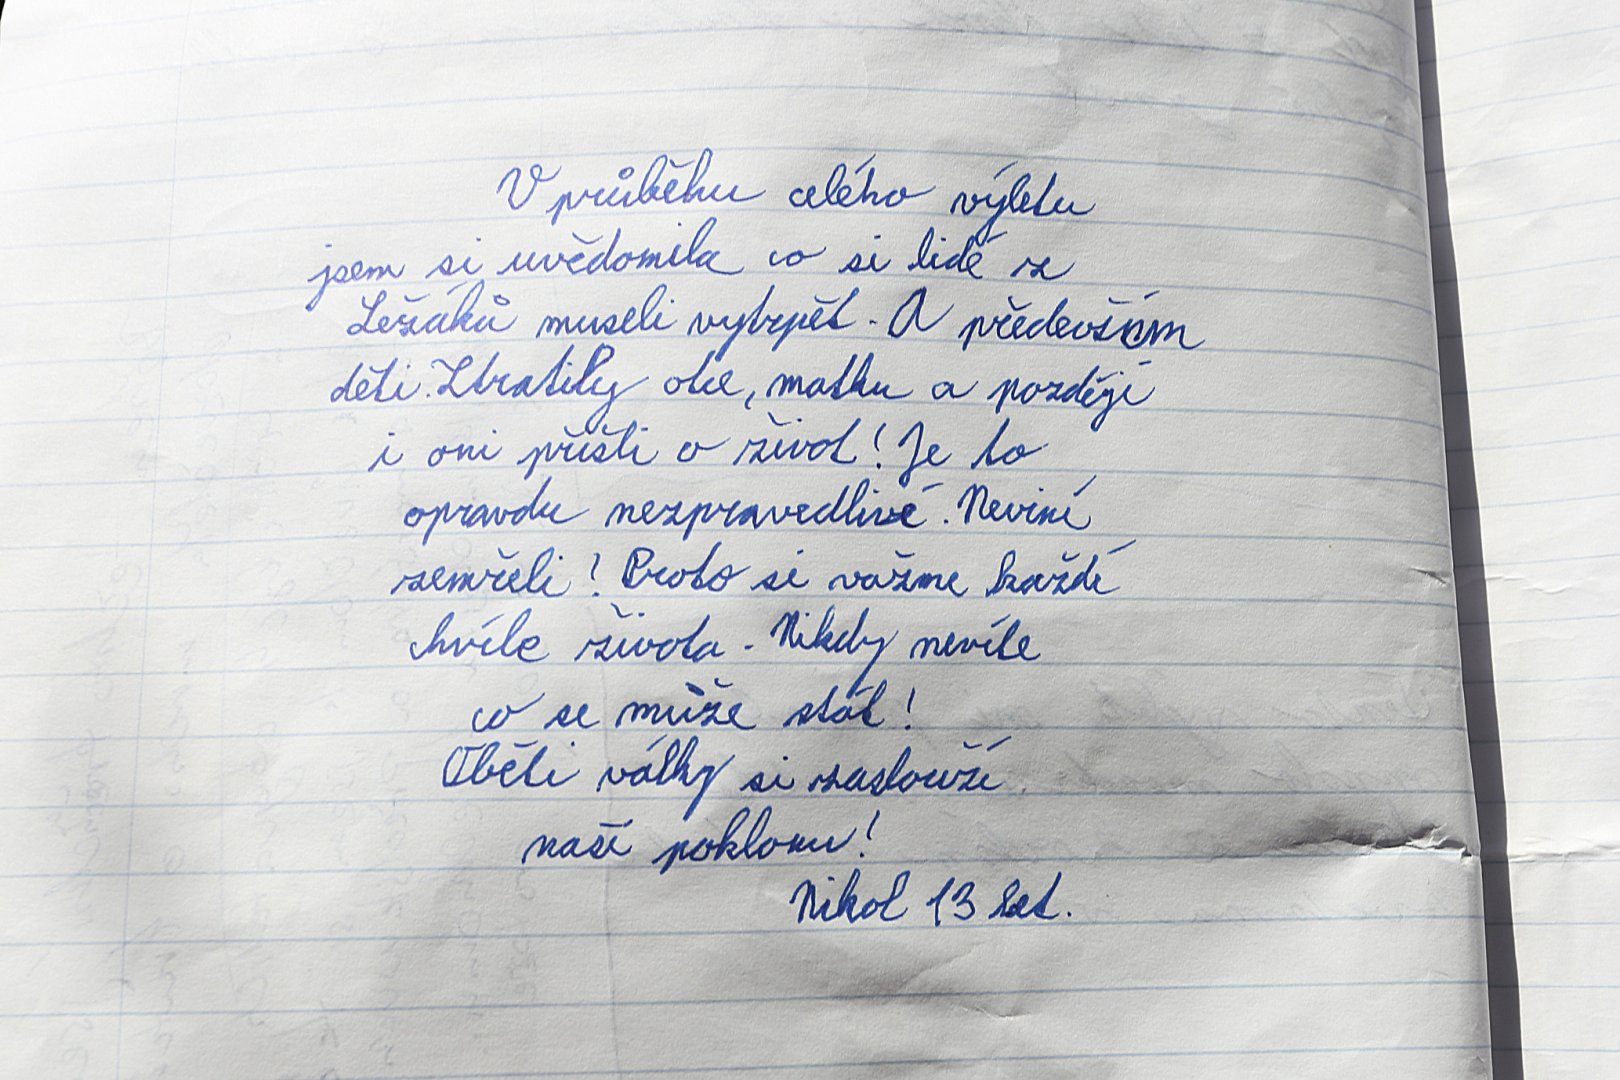 V průběhu celého výletu
jsem si uvědomila co si lidé z
Ležáků museli vytrpět. A především
děti. Ztratily otce, matku a pozdějí
i oni přišli o život! Je to
opravdu nezpravedlivé. Neviní
zemřeli! Proto si važme každé
chvíle života. Nikdy nevíte
co se může stát!
Oběti války si zaslouží
naší poklonu!
Nikol 13 let.